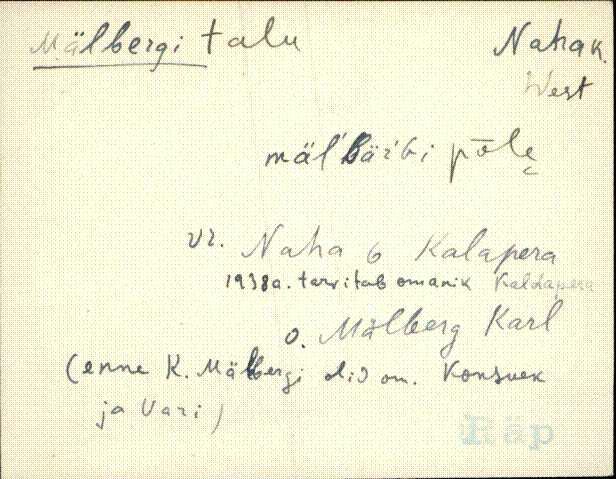 Mälbergi talu
Nahak.
West
mäl'bär'gi põlę
vr. Naha 6 Kalapera
1938a. tarvitab omanik Kaldapera
o. Mälberg Karl
(enne K. Mälbergi olid om. Konsuek
ja Vari)
Räp